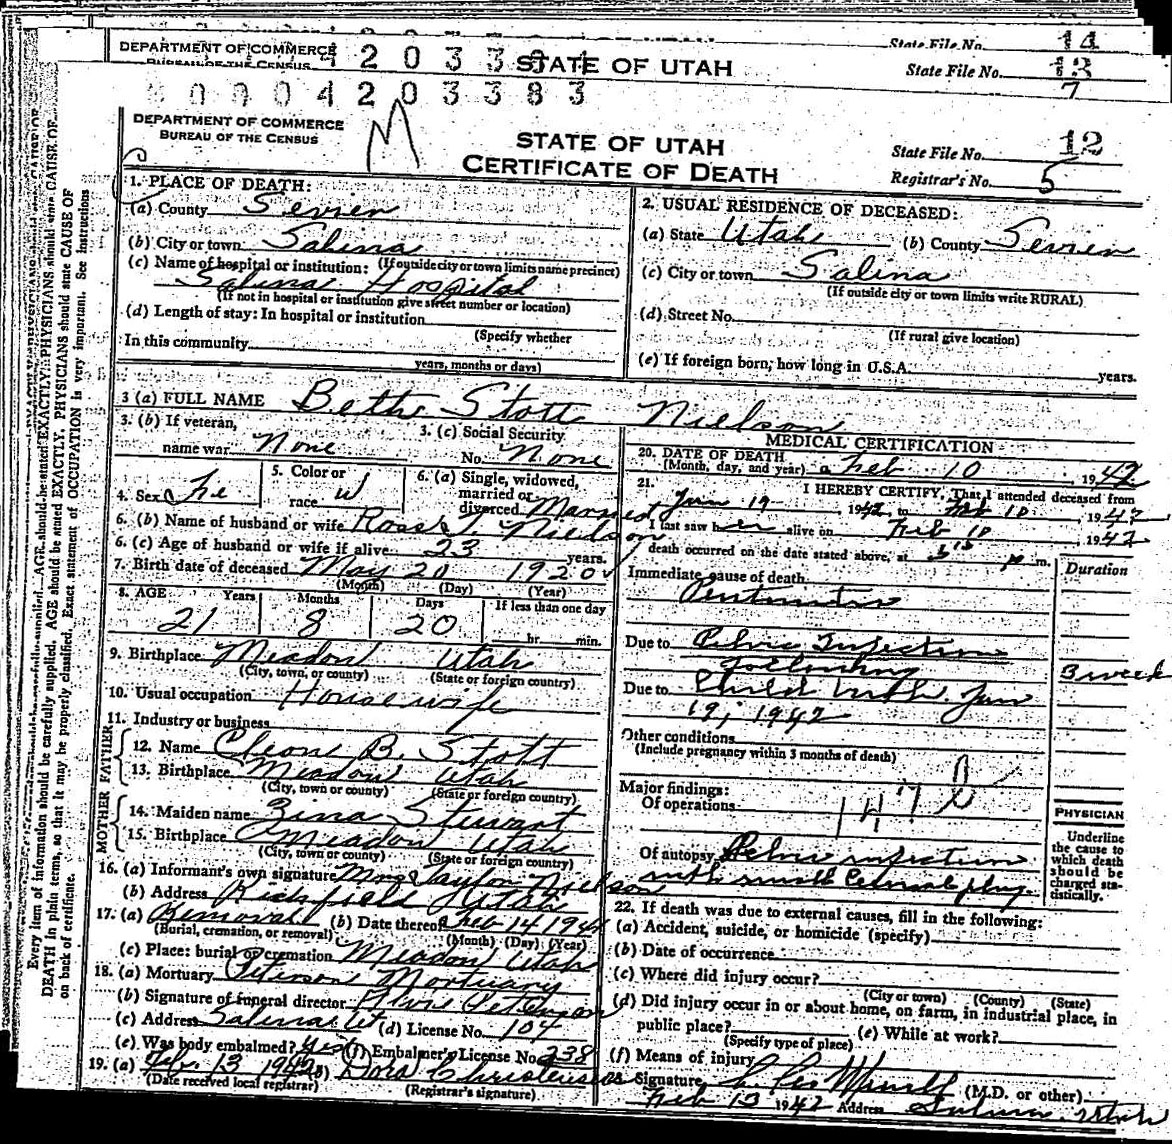 DEPARTMENT OF COMMERCE
BUREAU OF THE CENSUS
STATE OF UTAH
State File No. 14
State File No. 13
7
0 4 2 0 3 3 8 3
DEPARTMENT OF COMMERCE
BUREAU OF THE CENSUS
M
STATE OF UTAH
CERTIFICATE OF DEATH
State File No. 12
Registrar's No. 5
Every item of information should be carefully supplied. AGE should be stated EXACTLY. PHYSICIANS should state CAUSE OF
DEATH in plain terms, so that it may be properly classified. Exact statement of OCCUPATION is very important. See instructions
on back of certificate.
1. PLACE OF DEATH:
(a) County Sevier
(b) City or town Salina
(If outside city or town limits name precinct)
(c) Name of hospital or institution:
Salina Hospital
(If not in hospital or institution give street number or location)
(d) Length of stay: In hospital or institution
(Specify whether
In this community
years, months or days)
2. USUAL RESIDENCE OF DECEASED:
(a) State Utah (b) County Sevier
(c) City or town Salina
(If outside city or town limits write RURAL)
(d) Street No.
(If rural give location)
(e) If foreign born, how long in U.S.A. years.
3 (a) FULL NAME Beth Stott Nielson
3. (b) If veteran,
name war None
3. (c) Social Security
No. None
4. Sex Fe
5. Color or
race W
6. (a) Single, widowed,
married or
divorced Married
6. (b) Name of husband or wife Ross T. Nielson
6. (c) Age of husband or wife if alive 23 years.
7. Birth date of deceased May 20 1920
(Month) (Day) (Year)
8. AGE Years Months Days If less than one day
21 8 20 hr. min.
9. Birthplace Meadow Utah
(City, town, or county) (State or foreign country)
10. Usual occupation Housewife
11. Industry or business
FATHER
12. Name Cleone B. Stott
13. Birthplace Meadow Utah
(City, town or county) (State or foreign country)
MOTHER
14. Maiden name Zina Stewart
15. Birthplace Meadow Utah
(City, town or county) (State or foreign country)
16. (a) Informant's own signature Mrs Taylor Nielson
(b) Address Richfield Utah
17. (a) Removal (b) Date thereof Feb 14 1942
(Burial, cremation, or removal) (Month) (Day) (Year)
(c) Place: burial or cremation Meadow Utah
18. (a) Mortuary Peterson Mortuary
(b) Signature of funeral director Peterson
(c) Address Salina Ut (d) License No. 104
(e) Was body embalmed? Yes (f) Embalmer's License No. 238
19. (a) Feb. 13 1942 (b) Dora Christensen
(Date received local registrar) (Registrar's signature)
MEDICAL CERTIFICATION
20. DATE OF DEATH
(Month, day, and year) Feb 10 1942
21. I HEREBY CERTIFY, That I attended deceased from
Jan 19 1942 to Feb 10 1942
I last saw her alive on Feb 10 1942
death occurred on the date stated above, at p m.
Duration
Immediate cause of death
Peritonitis
Due to Pelvic Infection
following
3 week
Due to Child birth Jan
19, 1942
Other conditions
(Include pregnancy within 3 months of death)
Major findings:
Of operations
147 b
PHYSICIAN
Underline
the cause to
which death
should be
charged sta-
tistically.
Of autopsy Pelvic infection
with small
22. If death was due to external causes, fill in the following:
(a) Accident, suicide, or homicide (specify)
(b) Date of occurrence
(c) Where did injury occur?
(City or town) (County) (State)
(d) Did injury occur in or about home, on farm, in industrial place, in
public place? (e) While at work?
(Specify type of place)
(f) Means of injury
Signature (M.D. or other)
Feb 13 1942 Address Salina Utah